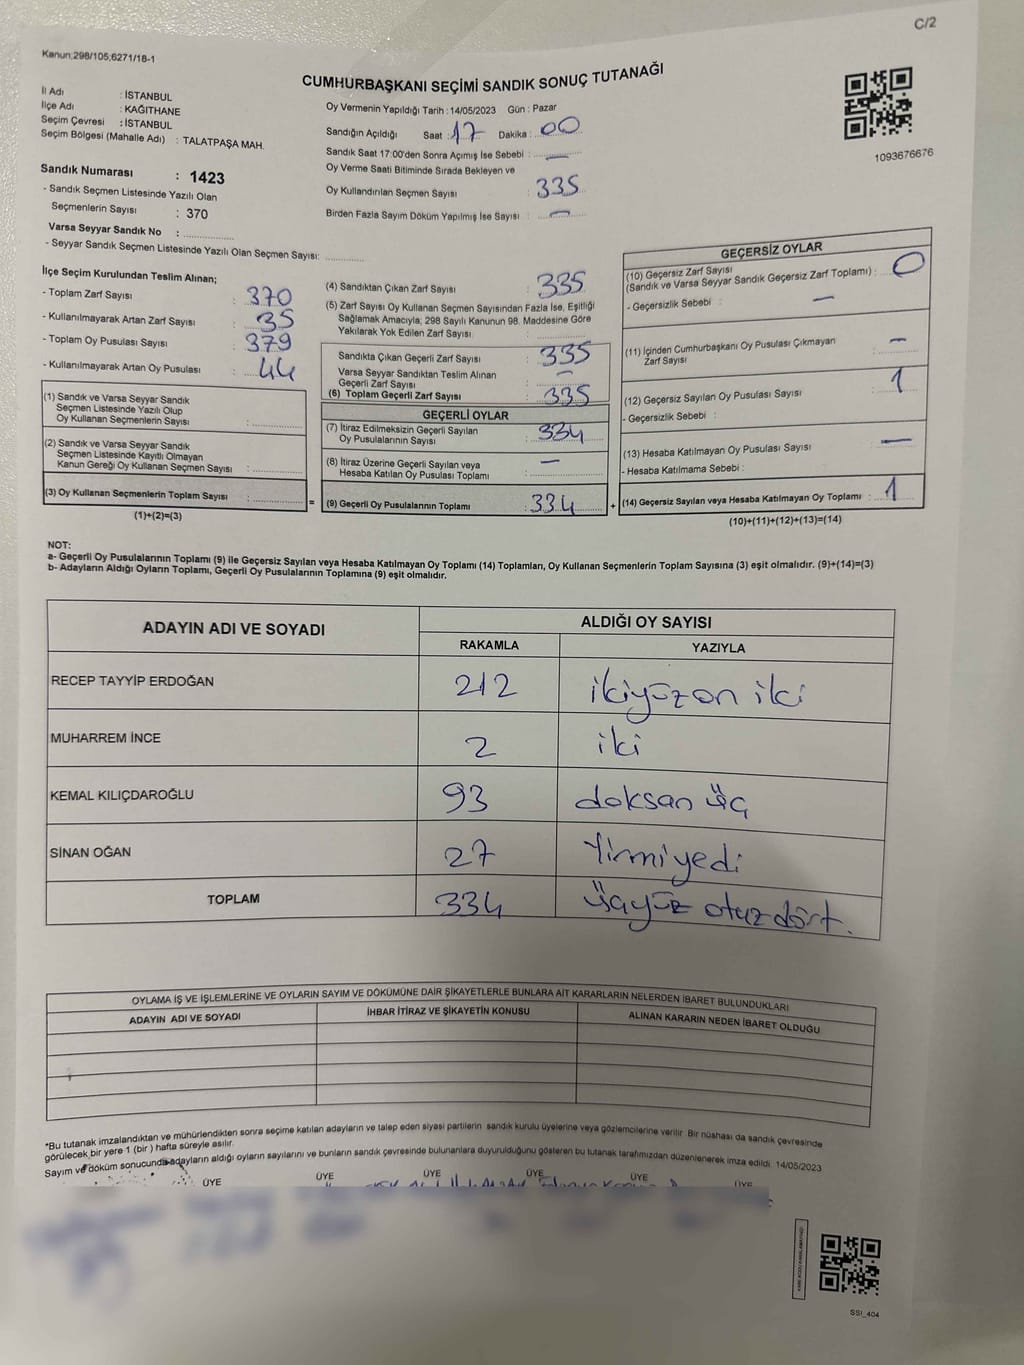 C/2
Kanun;298/105;6271/18-1
CUMHURBAŞKANI SEÇİMİ SANDIK SONUÇ TUTANAĞI
İl Adı : İSTANBUL
İlçe Adı : KAĞITHANE
Seçim Çevresi : İSTANBUL
Seçim Bölgesi (Mahalle Adı) : TALATPAŞA MAH.
Oy Vermenin Yapıldığı Tarih : 14/05/2023 Gün : Pazar
Sandığın Açıldığı Saat : 17 Dakika : 00
Sandık Saat 17:00'den Sonra Açımış İse Sebebi : —
Oy Verme Saati Bitiminde Sırada Bekleyen ve
Oy Kullandırılan Seçmen Sayısı : 335
Birden Fazla Sayım Döküm Yapılmış İse Sayısı : —
1093676676
Sandık Numarası : 1423
- Sandık Seçmen Listesinde Yazılı Olan
Seçmenlerin Sayısı : 370
Varsa Seyyar Sandık No :
- Seyyar Sandık Seçmen Listesinde Yazılı Olan Seçmen Sayısı:
İlçe Seçim Kurulundan Teslim Alınan;
- Toplam Zarf Sayısı : 370
- Kullanılmayarak Artan Zarf Sayısı : 35
- Toplam Oy Pusulası Sayısı : 379
- Kullanılmayarak Artan Oy Pusulası : 44
(1) Sandık ve Varsa Seyyar Sandık
Seçmen Listesinde Yazılı Olup
Oy Kullanan Seçmenlerin Sayısı :
(2) Sandık ve Varsa Seyyar Sandık
Seçmen Listesinde Kayıtlı Olmayan
Kanun Gereği Oy Kullanan Seçmen Sayısı :
(3) Oy Kullanan Seçmenlerin Toplam Sayısı :
(1)+(2)=(3)
(4) Sandıktan Çıkan Zarf Sayısı : 335
(5) Zarf Sayısı Oy Kullanan Seçmen Sayısından Fazla İse, Eşitliği
Sağlamak Amacıyla; 298 Sayılı Kanunun 98. Maddesine Göre
Yakılarak Yok Edilen Zarf Sayısı :
Sandıkta Çıkan Geçerli Zarf Sayısı : 335
Varsa Seyyar Sandıktan Teslim Alınan
Geçerli Zarf Sayısı : —
(6) Toplam Geçerli Zarf Sayısı : 335
GEÇERLİ OYLAR
(7) İtiraz Edilmeksizin Geçerli Sayılan
Oy Pusulalarının Sayısı : 334
(8) İtiraz Üzerine Geçerli Sayılan veya
Hesaba Katılan Oy Pusulası Toplamı : —
= (9) Geçerli Oy Pusulalarının Toplamı : 334 +
GEÇERSİZ OYLAR
(10) Geçersiz Zarf Sayısı
(Sandık ve Varsa Seyyar Sandık Geçersiz Zarf Toplamı) : 0
- Geçersizlik Sebebi : —
(11) İçinden Cumhurbaşkanı Oy Pusulası Çıkmayan
Zarf Sayısı : —
(12) Geçersiz Sayılan Oy Pusulası Sayısı : 1
- Geçersizlik Sebebi :
(13) Hesaba Katılmayan Oy Pusulası Sayısı : —
- Hesaba Katılmama Sebebi :
(14) Geçersiz Sayılan veya Hesaba Katılmayan Oy Toplamı : 1
(10)+(11)+(12)+(13)=(14)
NOT:
a- Geçerli Oy Pusulalarının Toplamı (9) ile Geçersiz Sayılan veya Hesaba Katılmayan Oy Toplamı (14) Toplamları, Oy Kullanan Seçmenlerin Toplam Sayısına (3) eşit olmalıdır. (9)+(14)=(3)
b- Adayların Aldığı Oyların Toplamı, Geçerli Oy Pusulalarının Toplamına (9) eşit olmalıdır.
ADAYIN ADI VE SOYADI
ALDIĞI OY SAYISI
RAKAMLA YAZIYLA
RECEP TAYYİP ERDOĞAN 212 ikiyüzon iki
MUHARREM İNCE 2 iki
KEMAL KILIÇDAROĞLU 93 doksan üç
SİNAN OĞAN 27 Yirmiyedi
TOPLAM 334 Üçyüz otuz dört.
OYLAMA İŞ VE İŞLEMLERİNE VE OYLARIN SAYIM VE DÖKÜMÜNE DAİR ŞİKAYETLERLE BUNLARA AİT KARARLARIN NELERDEN İBARET BULUNDUKLARI
ADAYIN ADI VE SOYADI İHBAR İTİRAZ VE ŞİKAYETİN KONUSU ALINAN KARARIN NEDEN İBARET OLDUĞU
*Bu tutanak imzalandıktan ve mühürlendikten sonra seçime katılan adayların ve talep eden siyasi partilerin sandık kurulu üyelerine veya gözlemcilerine verilir Bir nüshası da sandık çevresinde
görülecek bir yere 1 (bir) hafta süreyle asılır.
Sayım ve döküm sonucunda adayların aldığı oyların sayılarını ve bunların sandık çevresinde bulunanlara duyurulduğunu gösteren bu tutanak tarafımızdan düzenlenerek imza edildi 14/05/2023
ÜYE ÜYE ÜYE ÜYE ÜYE ÜYE
SSI_404